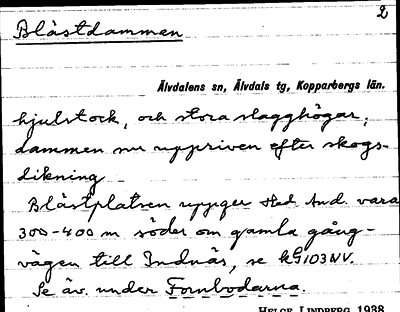 2
Blåstdammen
Älvdalens sn, Älvdals tg, Kopparbergs län.
hjulstock, och stora slagghögar;
dammen nu uppriven efter skogs-
dikning
Blåstplatsen uppger Had. And. vara
300-400 m söder om gamla gång-
vägen till Indnäs, se kG103NV.
Se äv. under Fornbodarna.
HELGE LINDBERG 1938